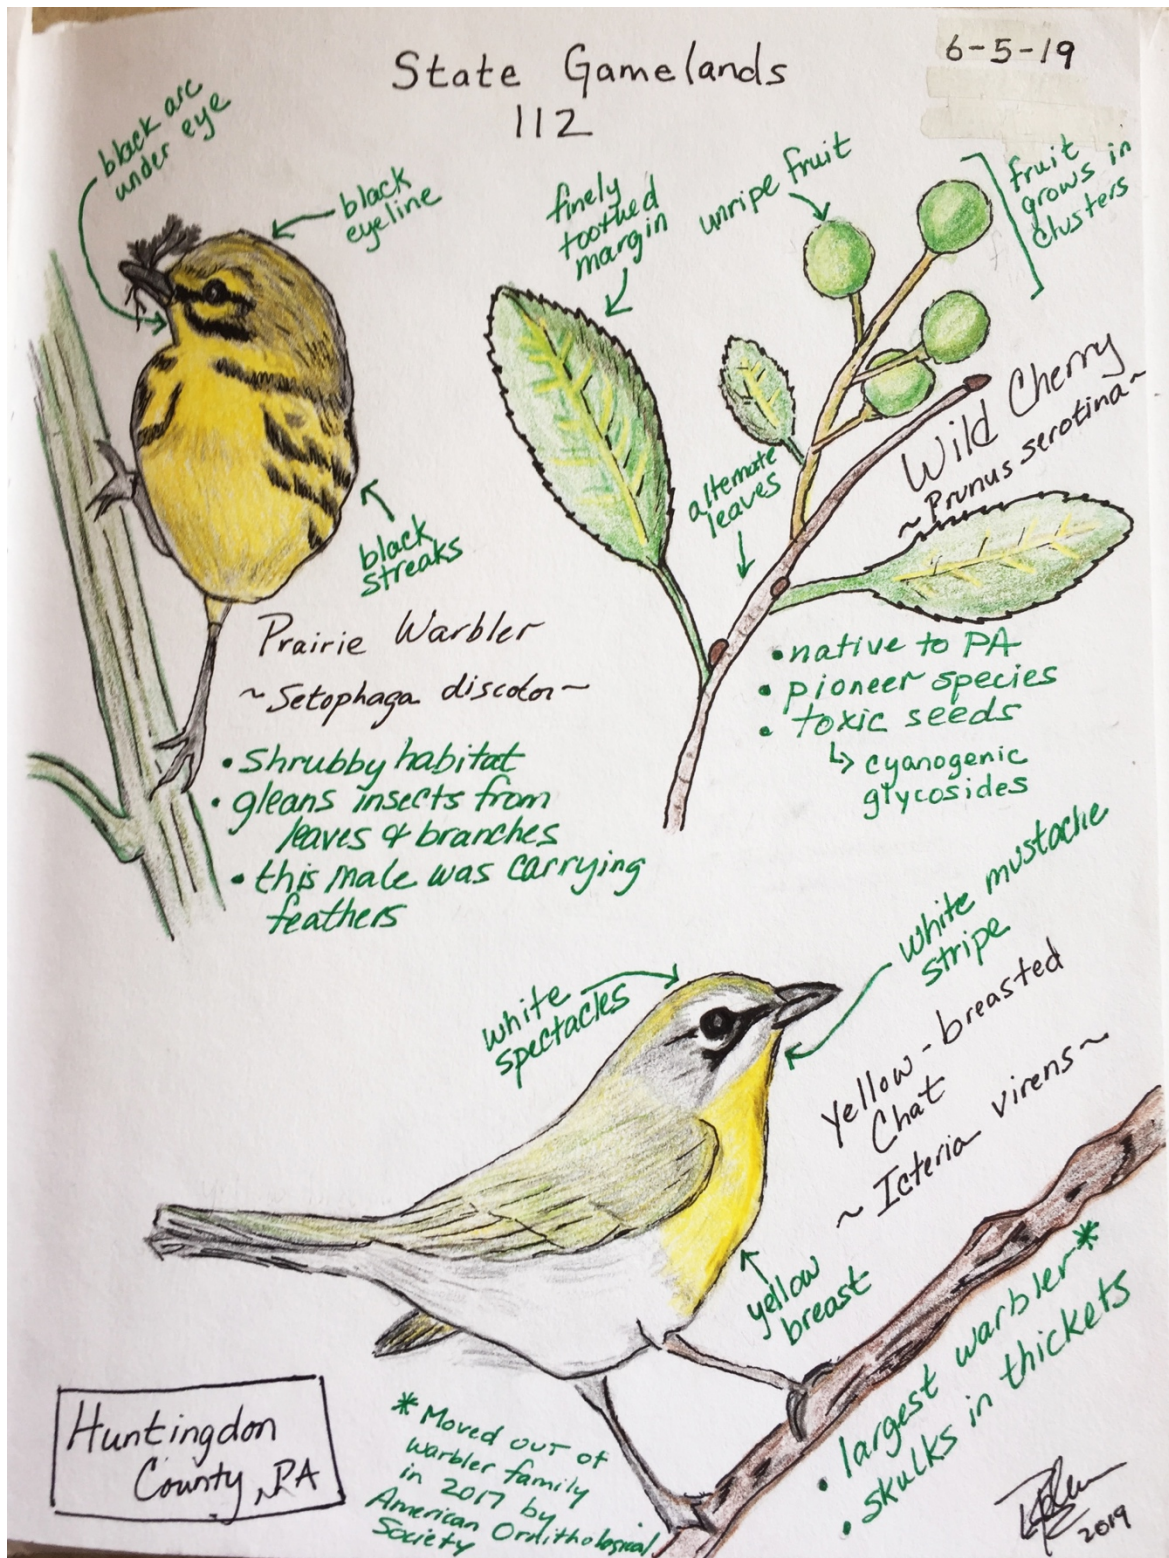 State Gamelands
112
6-5-19
black arc
under eye
black
eyeline
black
streaks
Prairie Warbler
~Setophaga discolor~
• Shrubby habitat
• gleans insects from
leaves & branches
• this male was carrying
feathers
finely
toothed
margin
unripe fruit
fruit
grows in
clusters
alternate
leaves
Wild Cherry
~Prunus serotina~
• native to PA
• pioneer species
• toxic seeds
↳ cyanogenic
glycosides
white
spectacles
white mustache
stripe
Yellow-breasted
Chat
~Icteria virens~
yellow
breast
• largest warbler*
• skulks in thickets
* Moved out of
warbler family
in 2017 by
American Ornithological
Society
Huntingdon
County, PA
2019